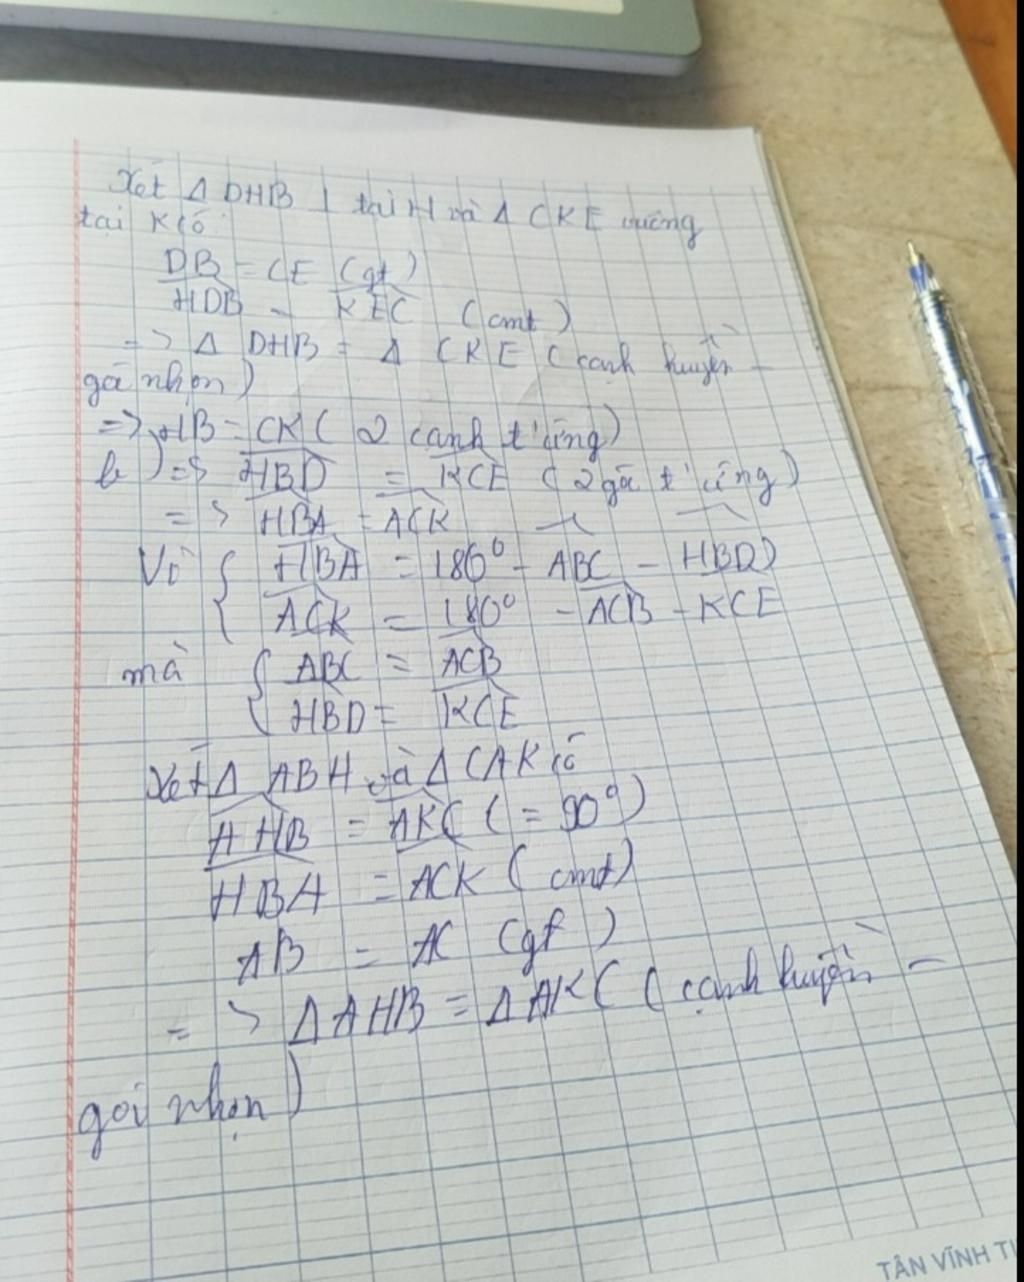 Xét Δ DHB ⊥ tại H và Δ CKE vuông
tại K có:
DB = CE (gt)
HDB = KEC (cmt)
=> Δ DHB = Δ CKE (cạnh huyền -
gó nhọn)
=> HB = CK ( 2 cạnh t'ứng)
b) => HBD = KCE (2 gó t'ứng)
=> HBA = ACK
Vì { HBA = 180⁰ - ABC - HBD
ACK = 180⁰ - ACB - KCE
mà { ABC = ACB
HBD = KCE
Xét Δ ABH và Δ CAK có
AHB = AKC ( = 90⁰)
HBA = ACK ( cmt)
AB = AC (gt )
=> Δ AHB = Δ AKC ( cạnh huyền -
gói nhọn)
TÂN VĨNH TI